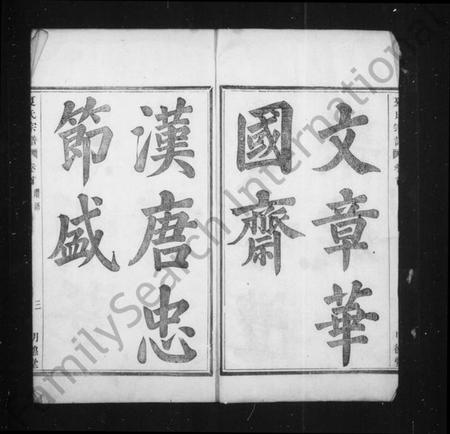 文章華
國齋
漢唐忠
節盛
夏氏宗譜
三
明德堂
FamilySearch International